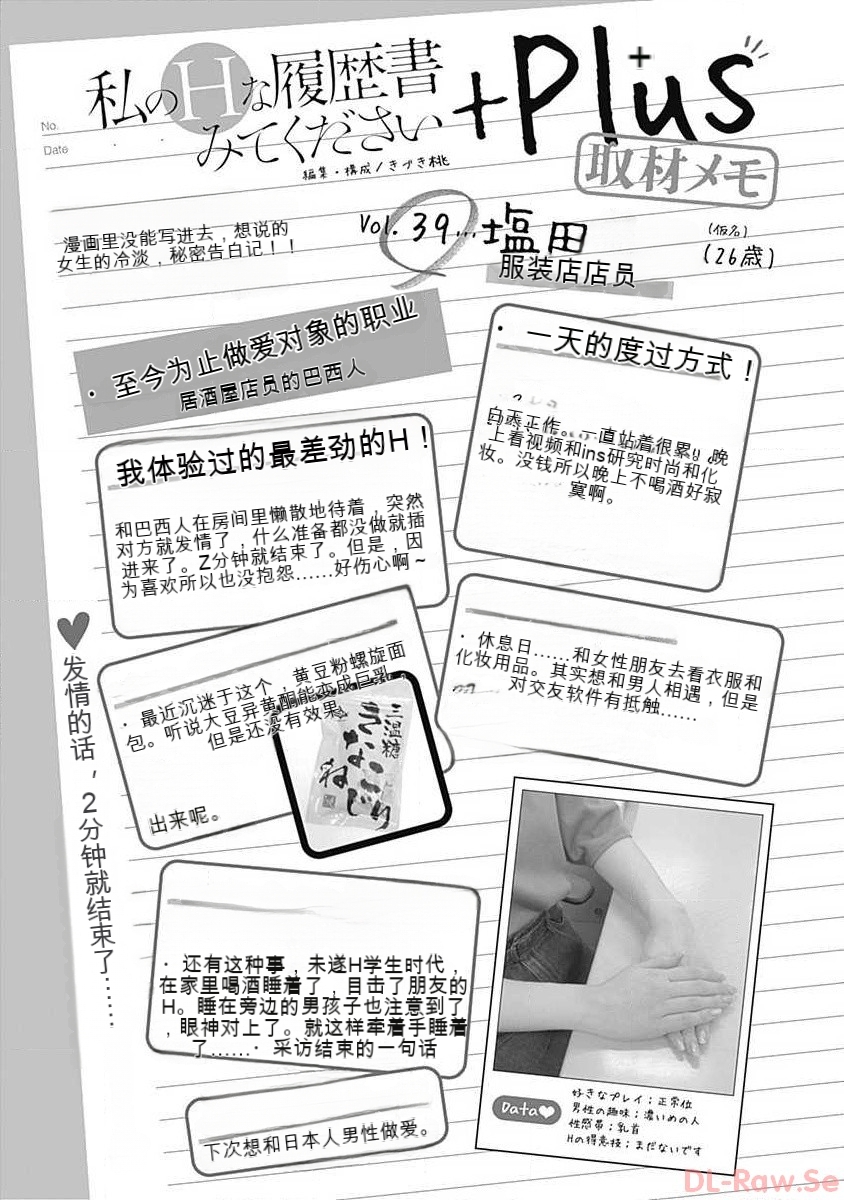 No.
Date
私のHな履歴書
みてください
+Plus
編集・構成/きづき桃
取材メモ
漫画里没能写进去，想说的
女生的冷淡，秘密告白记！！
Vol.39...塩田
(仮名)
(26歳)
服装店店员
・至今为止做爱对象的职业
居酒屋店员的巴西人
・一天的度过方式！
白天工作。一直站着很累。晚
上看视频和ins研究时尚和化
妆。没钱所以晚上不喝酒好寂
寞啊。
我体验过的最差劲的H！
和巴西人在房间里懒散地待着，突然
对方就发情了，什么准备都没做就插
进来了。Z分钟就结束了。但是，因
为喜欢所以也没抱怨……好伤心啊～
♥发情的话，2分钟就结束了……
・休息日……和女性朋友去看衣服和
化妆用品。其实想和男人相遇，但是
对交友软件有抵触……
・最近沉迷于这个，黄豆粉螺旋面
包。听说大豆异黄酮能变成巨乳，
但是还没有效果
出来呢。
三温糖
きなこねじり
・还有这种事，未遂H学生时代，
在家里喝酒睡着了，目击了朋友的
H。睡在旁边的男孩子也注意到了
，眼神对上了。就这样牵着手睡着
了……・采访结束的一句话
下次想和日本人男性做爱。
Data♥
好きなプレイ；正常位
男性の趣味；濃いめの人
性感帯；乳首
Hの得意技；まだないです
DL-Raw.Se